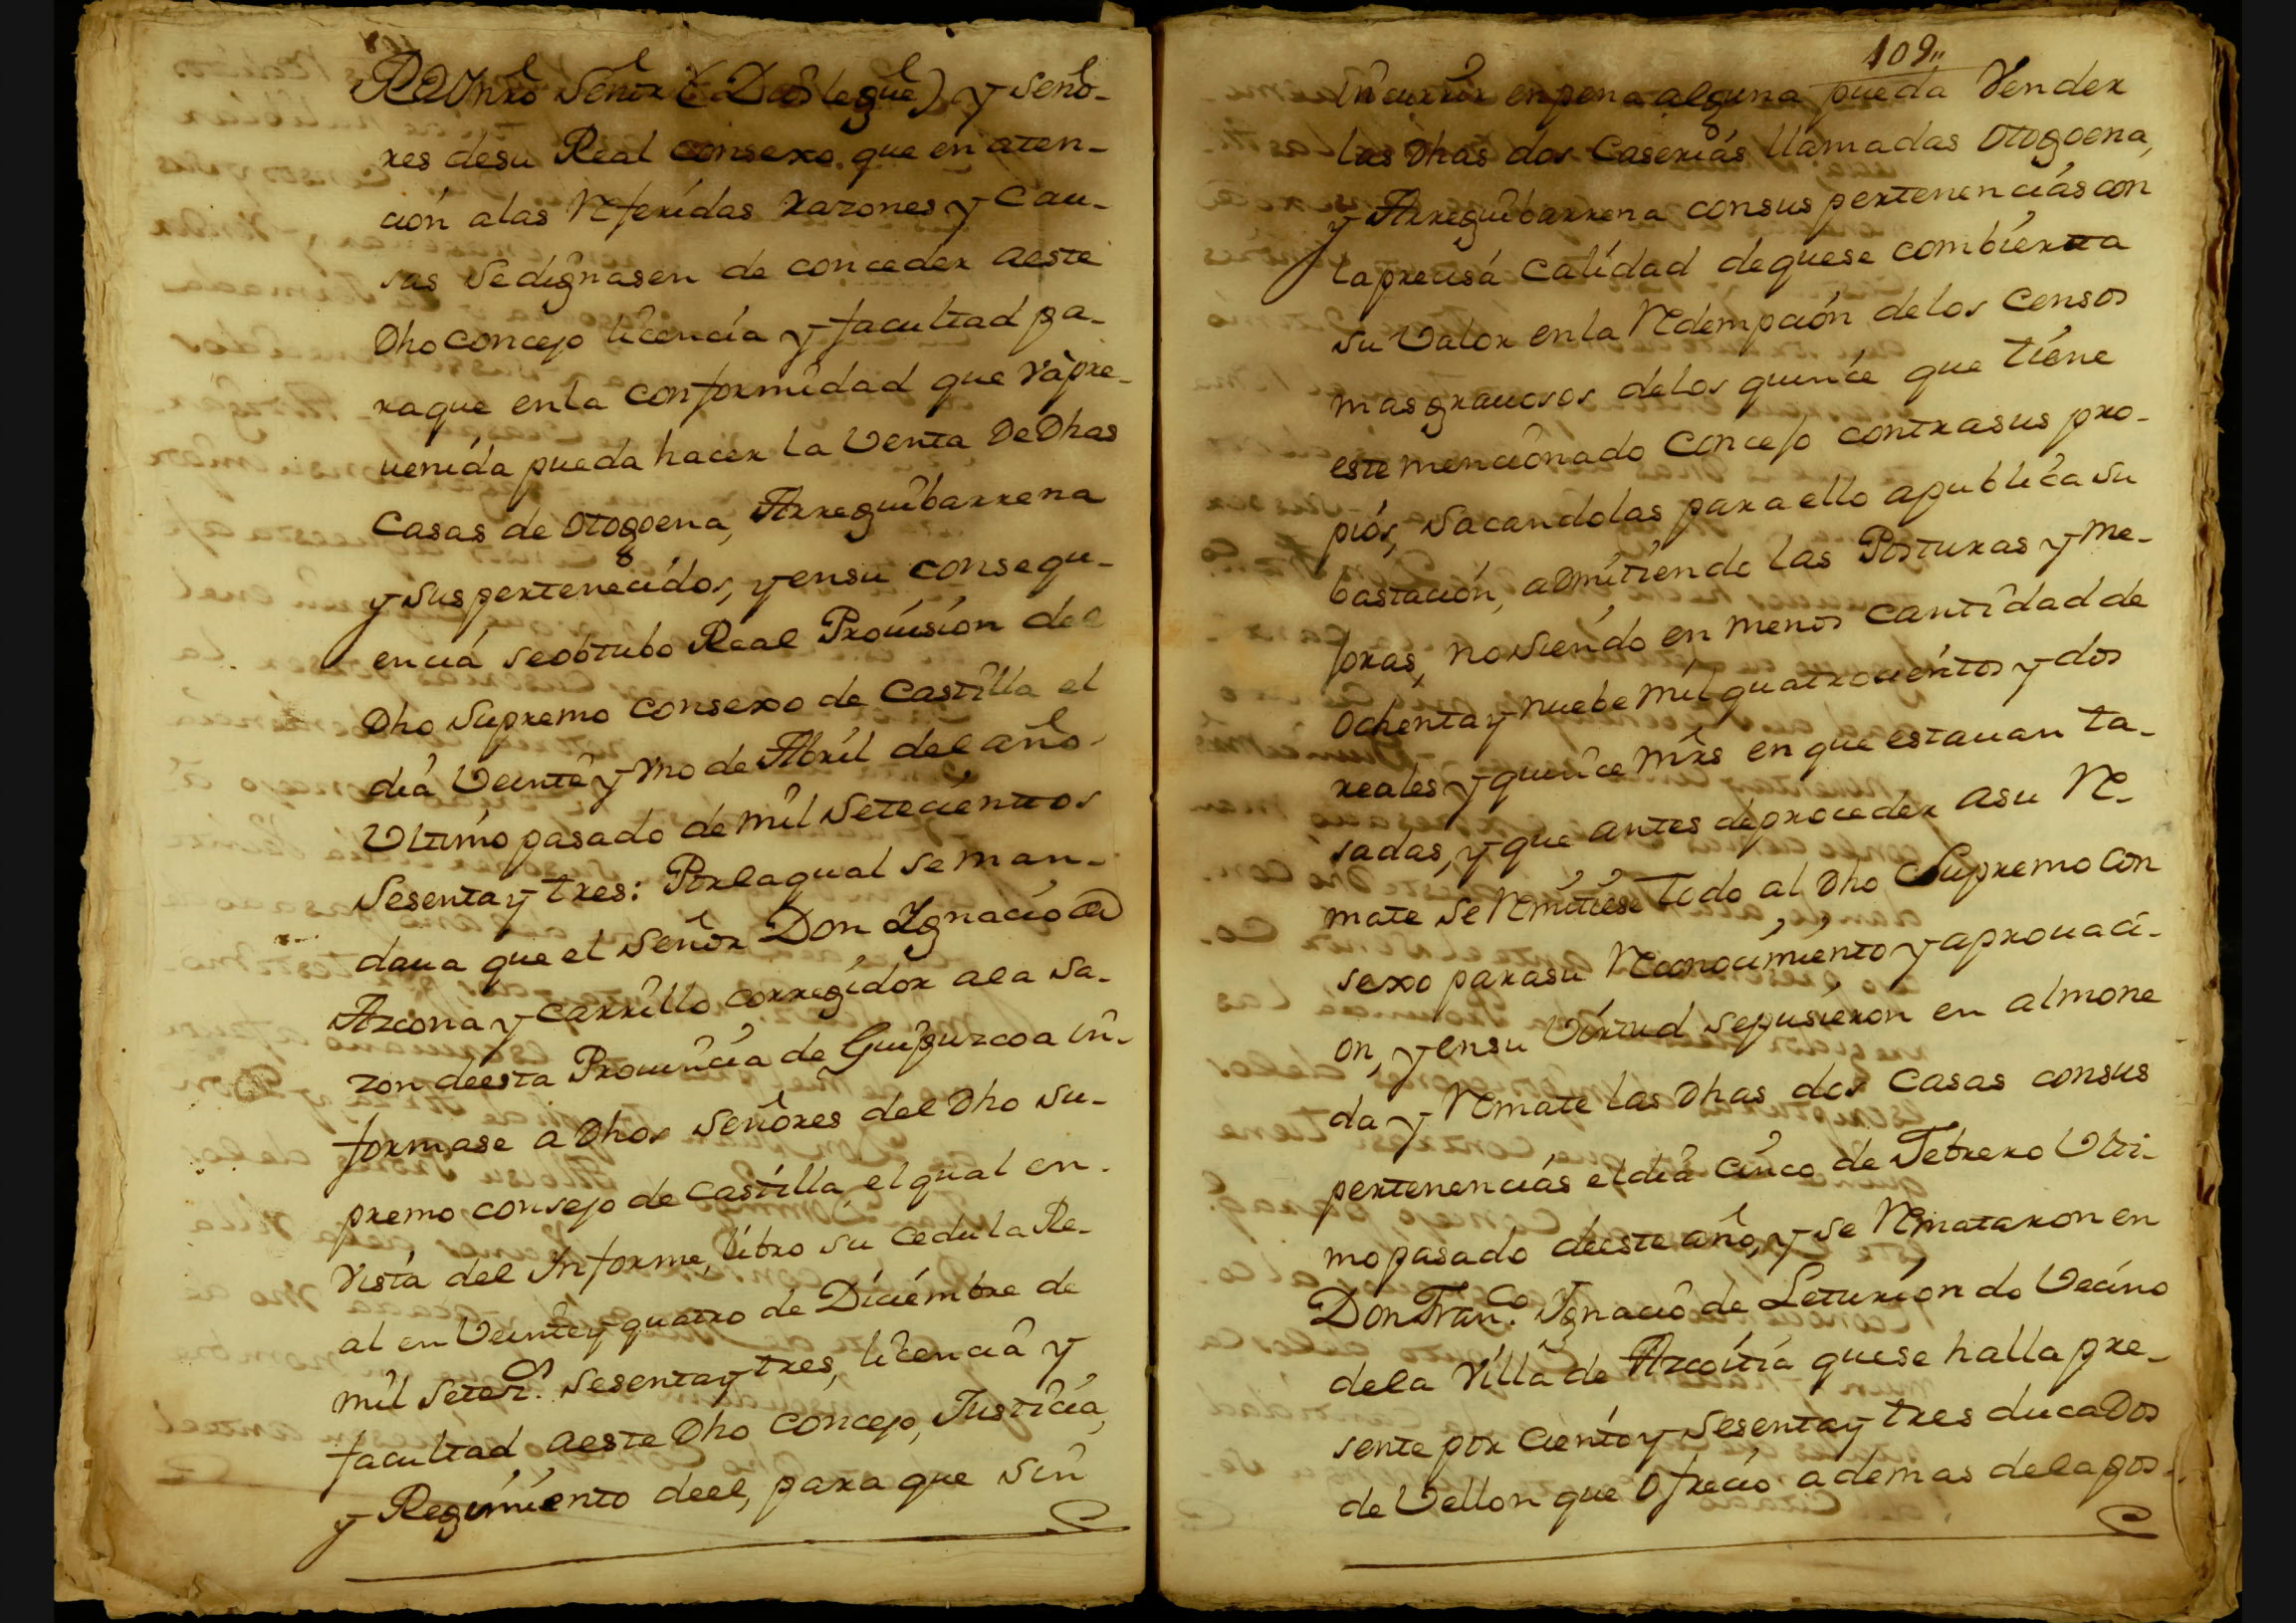 Rey Nro Señor (Dios legue) y seño-
res desu Real consexo que en aten-
ción alas Referidas razones y cau-
sas sedignasen de conceder aeste
Dho concejo licencia y facultad pa-
raque enla conformidad que va pre-
uenida pueda hacer la Venta De Dhas
Casas de Otogoena, Arreguibarrena
y sus pertenecidos, y ensu consequ-
encia seobtubo Real Prouision del
Dho Supremo consexo de Castilla el
dia Veinte y vno de Abril del año
Ultimo pasado de mil Setecienttos
Sesenta y tres: Porlaqual se man-
daua que el Señor Don Ygnacio de
Azcona y carrillo corregidor ala sa-
zon deesta Prouincia de Guipuzcoa in-
formase a Dhos Señores del Dho Su-
premo consejo de Castilla, el qual en
vista del Informe, libro su Cedula Re-
al en Veinte y quatro de Diciembre de
mil Setez.s Sesenta y tres, licencia y
facultad aeste Dho concejo, Justicia,
y Regimiento deel, para que sin
109
incurrir enpena alguna pueda Vender
las Dhas dos Caserias llamadas Otogoena,
y Arreguibarrena consus pertenencias con
la precisa calidad dequese combiertta
su Valor enla Redempcion delos Censos
mas grauosos delos quince que tiene
este mencionado Concejo contrasus pro-
pios, sacandolas para ello apublica su
bastacion, admitiendo las Posturas y me-
joras, no siendo en menos cantidad de
Ochenta y nuebe mil quatrocientos y dos
reales y quince mrs en que estauan ta-
sadas, y que antes deproceder asu Re-
mate se Remitiese todo al Dho Supremo con
sexo parasu Reconocimiento y aprouaci-
on, y ensu Virtud sepusieron en almone
da y Remate las Dhas dos Casas consus
pertenencias eldia cinco de Febrero Ulti-
mo pasado deeste año, y se Remataron en
Don Fran.co Ygnacio de Leturiondo Vecino
dela Villa de Azcoitia quese halla pre-
sente por ciento y Sesenta y tres ducados
de Vellon que Ofrecio ademas dela pos-